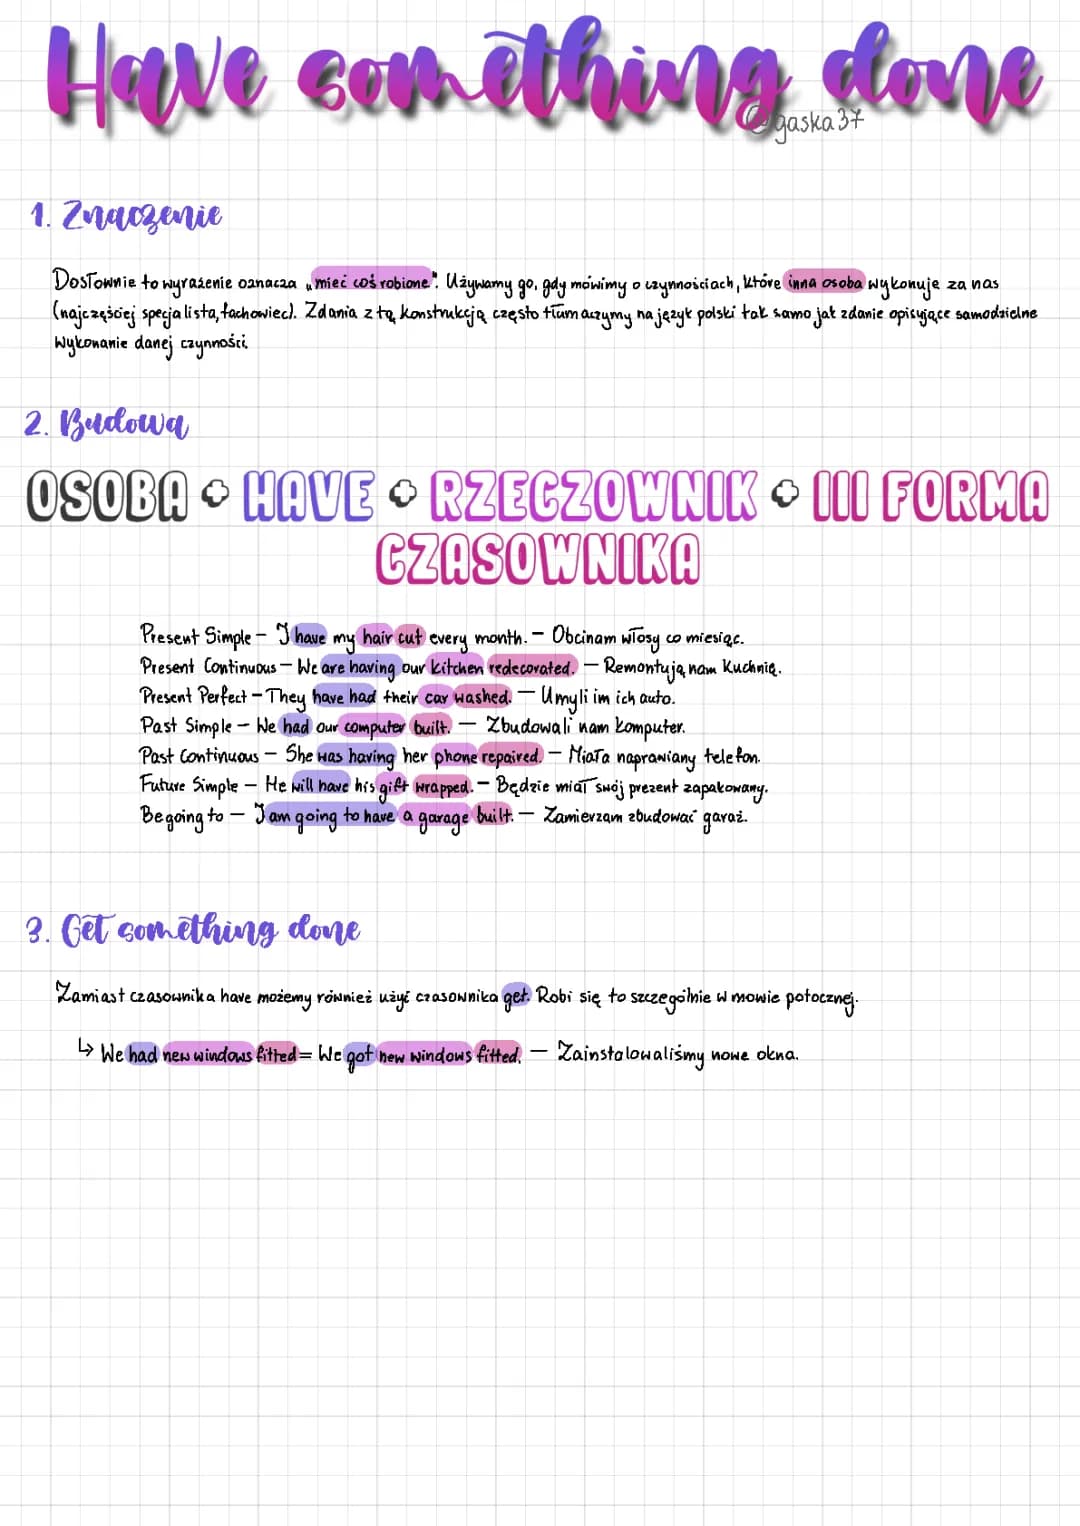 Have something done
@gaska37
1. Znaczenie
Dosłownie to wyrażenie oznacza „mieć coś robione". Używamy go, gdy mówimy o czynnościach, które inna osoba wykonuje za nas
(najczęściej specjalista, fachowiec). Zdania z tą konstrukcją często tłumaczymy na język polski tak samo jak zdanie opisujące samodzielne
wykonanie danej czynności.
2. Budowa
OSOBA + HAVE + RZECZOWNIK + III FORMA
CZASOWNIKA
Present Simple – I have my hair cut every month. – Obcinam włosy co miesiąc.
Present Continuous – We are having our kitchen redecorated. – Remontują nam kuchnię.
Present Perfect – They have had their car washed. – Umyli im ich auto.
Past Simple – We had our computer built. – Zbudowali nam komputer.
Past Continuous – She was having her phone repaired. – Miała naprawiany telefon.
Future Simple – He will have his gift wrapped. – Będzie miał swój prezent zapakowany.
Be going to – I am going to have a garage built. – Zamierzam zbudować garaż.
3. Get something done
Zamiast czasownika have możemy również użyć czasownika get. Robi się to szczególnie w mowie potocznej.
↳ We had new windows fitted = We got new windows fitted. – Zainstalowaliśmy nowe okna.